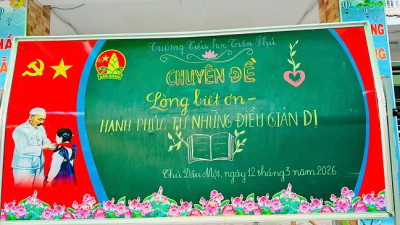 Trường Tiểu học Trần Phú
CHUYÊN ĐỀ
Lòng biết ơn -
HẠNH PHÚC TỪ NHỮNG ĐIỀU GIẢN DỊ
Thủ Dầu Một, ngày 12 tháng 3 năm 2026